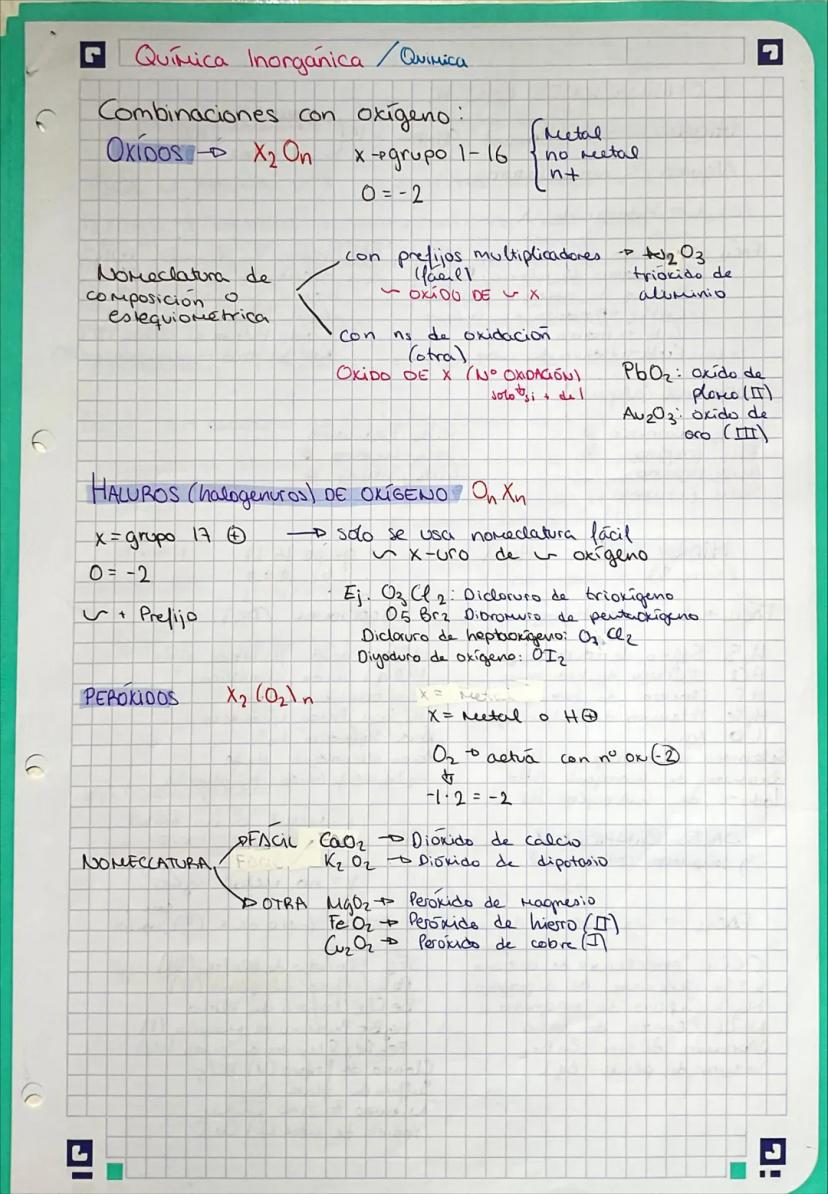 Química Inorgánica / Química
Combinaciones con oxígeno:
OXÍDOS → X2On x→grupo 1-16 { Metal
no metal
n+
O = -2
Nomeclatura de composición o estequiométrica
con prefijos multiplicadores → Al2O3
(fácil) trióxido de
~ OXÍDO DE ~ X aluminio
con ns de oxidación
(otra)
OXIDO DE X (Nº OXIDACIÓN) PbO2: oxído de
solo si + de 1 plomo (II)
Au2O3: oxído de
oro (III)
HALUROS (halogenuros) DE OXÍGENO OnXn
x = grupo 17 ⊕ → solo se usa nomeclatura fácil
~ x-uro de ~ oxígeno
O = -2
Ej. O3Cl2: Dicloruro de trioxígeno
~ + Prefijo O5Br2 Dibromuro de pentaoxígeno
Dicloruro de heptaoxígeno: O7Cl2
Diyoduro de oxígeno: OI2
PERÓXIDOS X2(O2)n
x = Metal o H⊕
O2 → actuá con nº ox (-2)
↓
-1·2 = -2
NOMECLATURA
FÁCIL CaO2 → Dióxido de calcio
K2O2 → Dióxido de dipotasio
OTRA MgO2 → Peróxido de magnesio
FeO2 → Peróxido de hierro (II)
Cu2O2 → Peróxido de cobre (I)